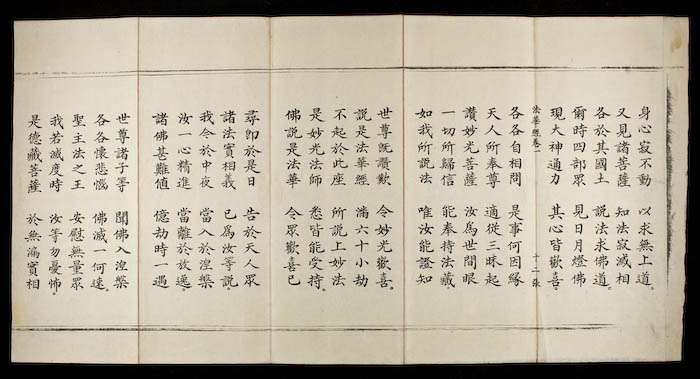 身心寂不動　以求無上道。
又見諸菩薩　知法寂滅相
各於其國土　說法求佛道。
爾時四部眾　見日月燈佛
現大神通力　其心皆歡喜。
法華經卷一　十二張
各各自相問　是事何因緣
天人所奉尊　適從三昧起
讚妙光菩薩　汝爲世間眼
一切所歸信　能奉持法藏
如我所說法　唯汝能證知
世尊旣讚歎　令妙光歡喜。
說是法華經　滿六十小劫
不起於此座　所說上妙法
是妙光法師　悉皆能受持。
佛說是法華　令眾歡喜已
尋卽於是日　告於天人眾
諸法實相義　已爲汝等說
我今於中夜　當入於涅槃
汝一心精進　當離於放逸。
諸佛甚難値　億劫時一遇
世尊諸子等　聞佛入涅槃
各各懷悲惱　佛滅一何速。
聖主法之王　安慰無量眾
我若滅度時　汝等勿憂怖。
是德藏菩薩　於無漏實相